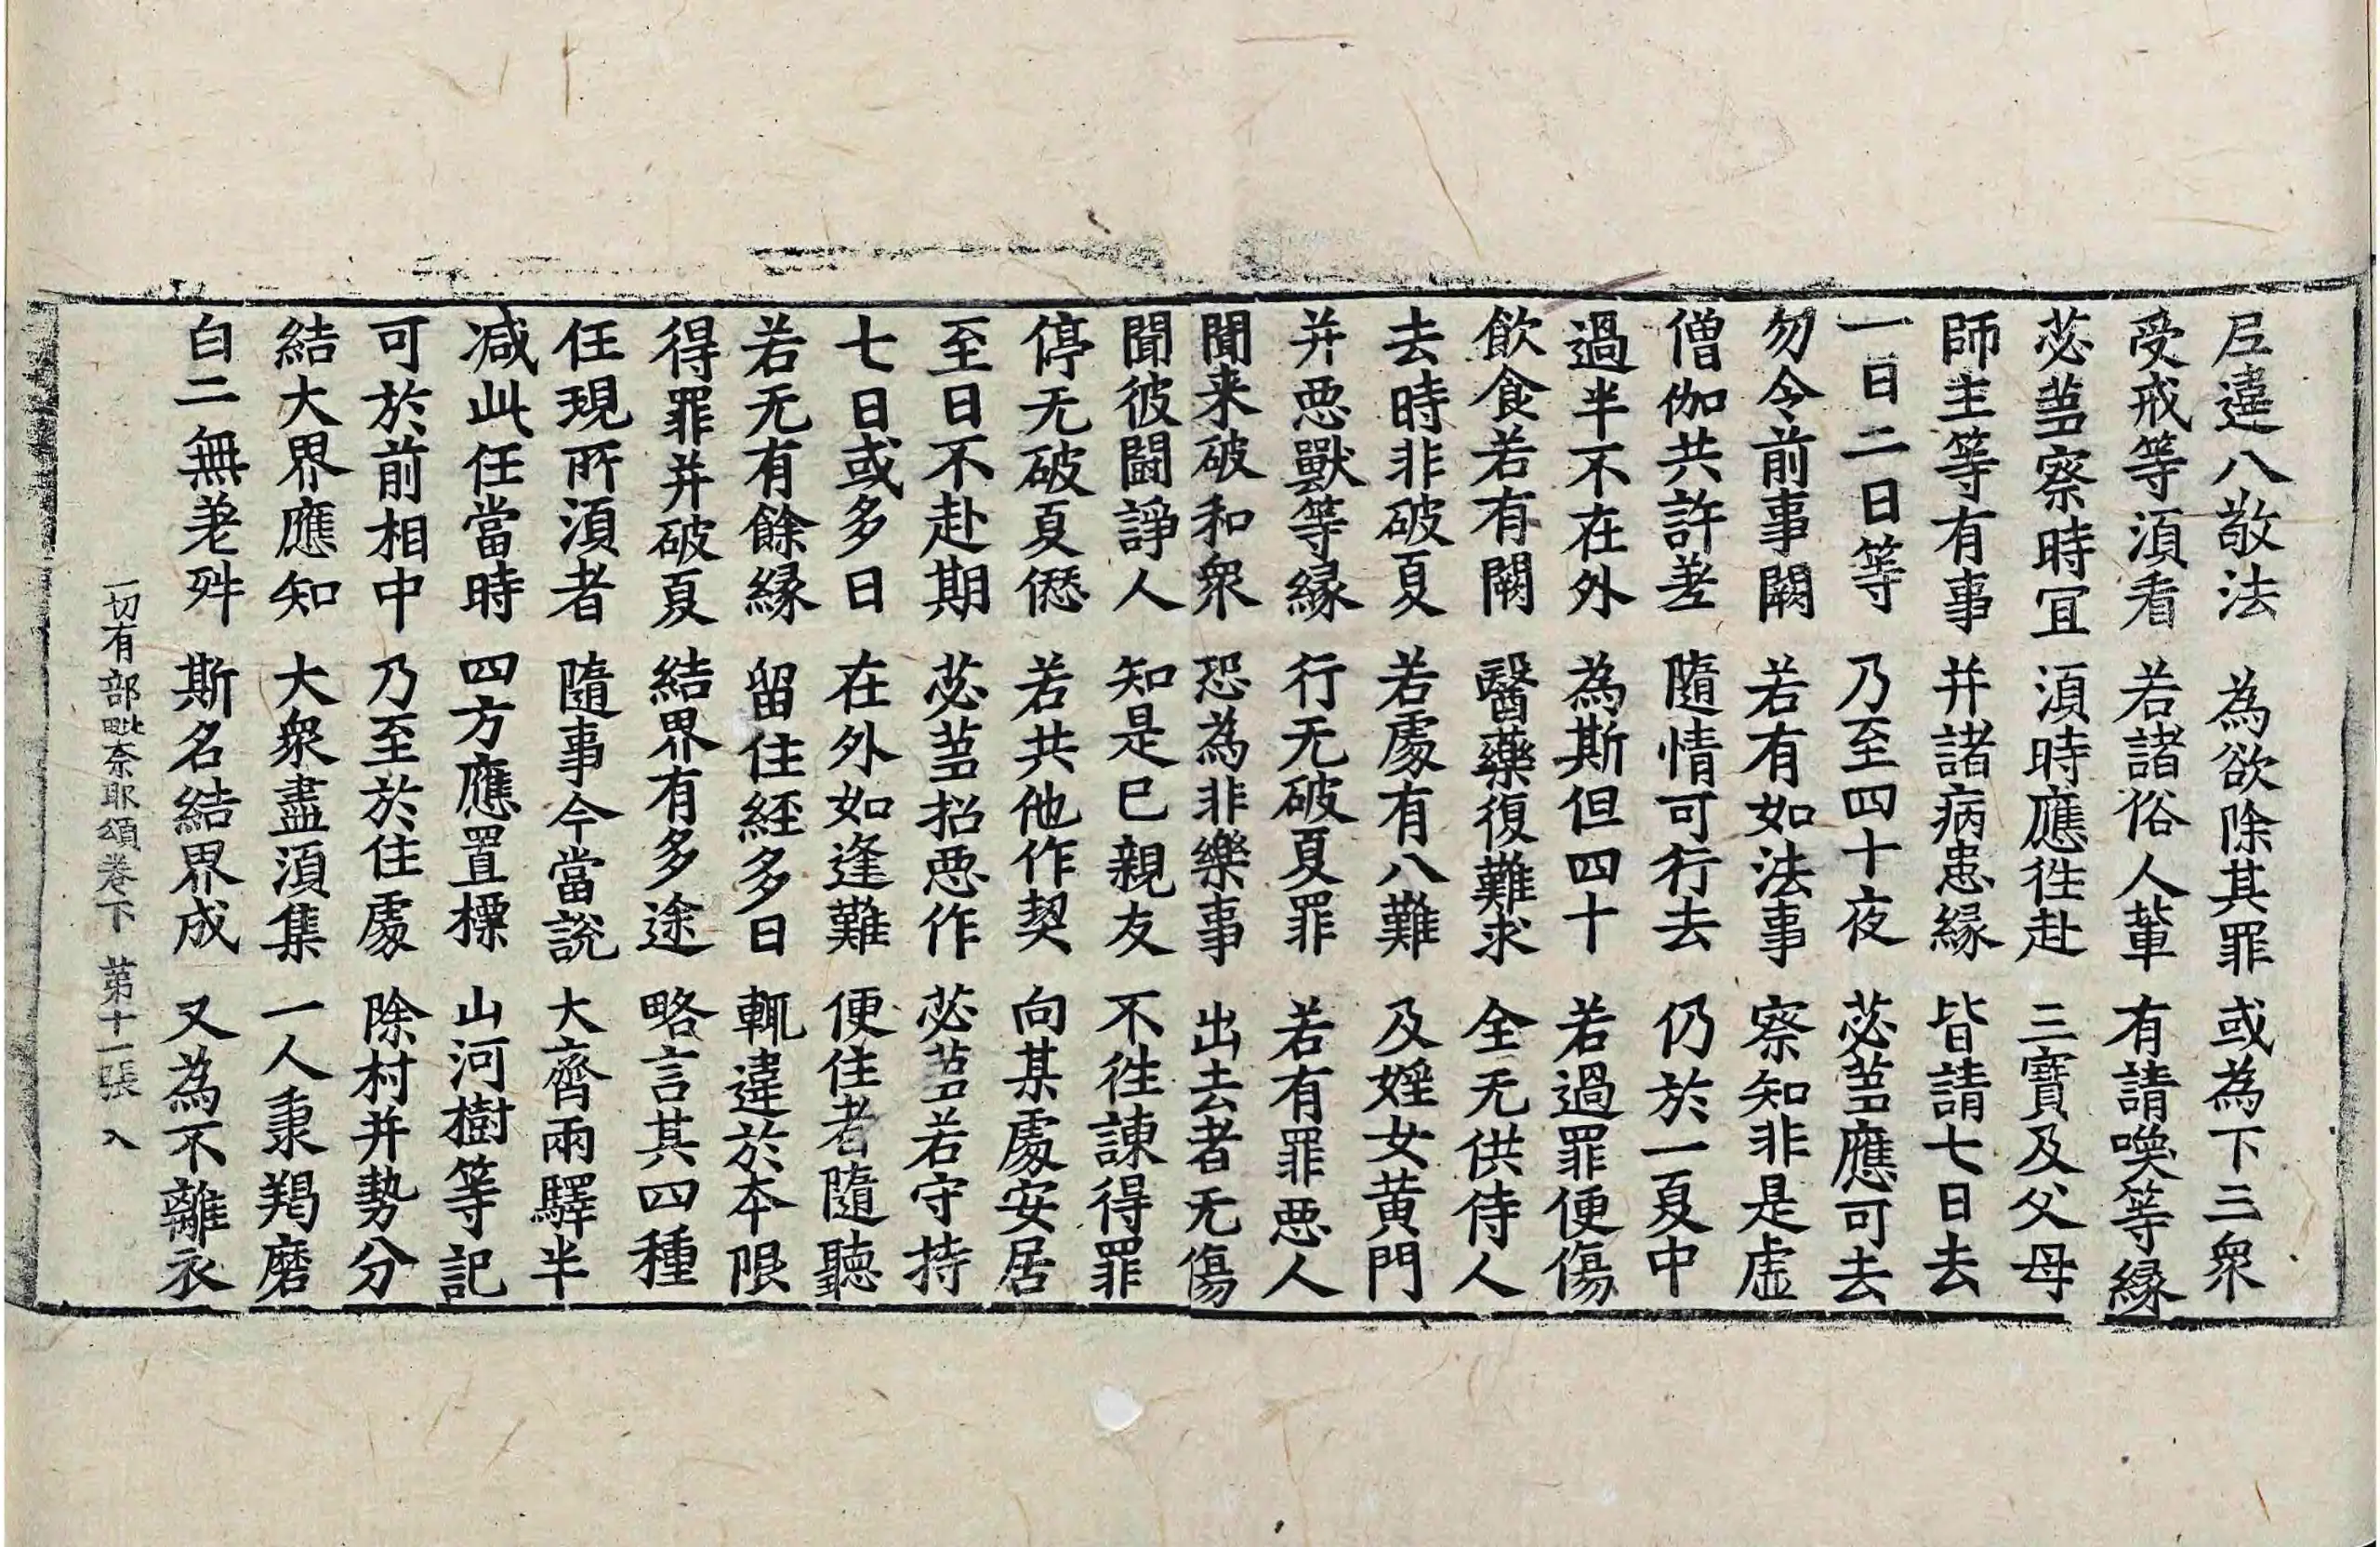 尼違八敬法　為欲除其罪　或為下三衆
受戒等湏看　若諸俗人輩　有請喚等緣
苾蒭察時冝　湏時應徃赴　三寶及父母
師主等有事　并諸病患緣　皆請七日去
一日二日等　乃至四十夜　苾蒭應可去
勿令前事闕　若有如法事　察知非是虛
僧伽共許差　隨情可行去　仍於一夏中
過半不在外　為斯但四十　若過罪便傷
飲食若有闕　醫藥復難求　全无供侍人
去時非破夏　若處有八難　及婬女黃門
并惡獸等緣　行无破夏罪　若有罪惡人
聞来破和衆　恐為非樂事　出去者无傷
聞彼鬪諍人　知是已親友　不徃諫得罪
停无破夏𠎝　若共他作契　向某處安居
至日不赴期　苾蒭招惡作　苾蒭若守持
七日或多日　在外如逢難　便住者隨聽
若无有餘緣　留住經多日　輒違於本限
得罪并破夏　結界有多途　略言其四種
任現所湏者　隨事今當說　大齊兩驛半
减此任當時　四方應置㯹　山河樹等記
可於前相中　乃至於住處　除村并勢分
結大界應知　大衆盡湏集　一人秉羯磨
白二無差舛　斯名結界成　又為不離衣
一切有部毗奈耶頌卷下　第十一張　入